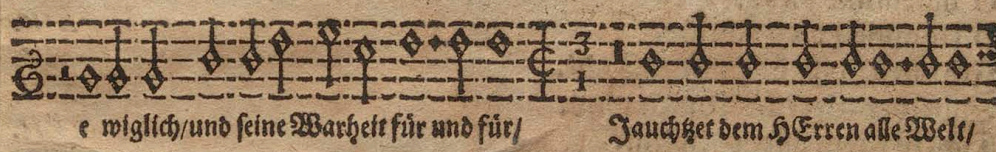 e wiglich/und ſeine Warheit für und für/ Jauchtzet dem HErren alle Welt/